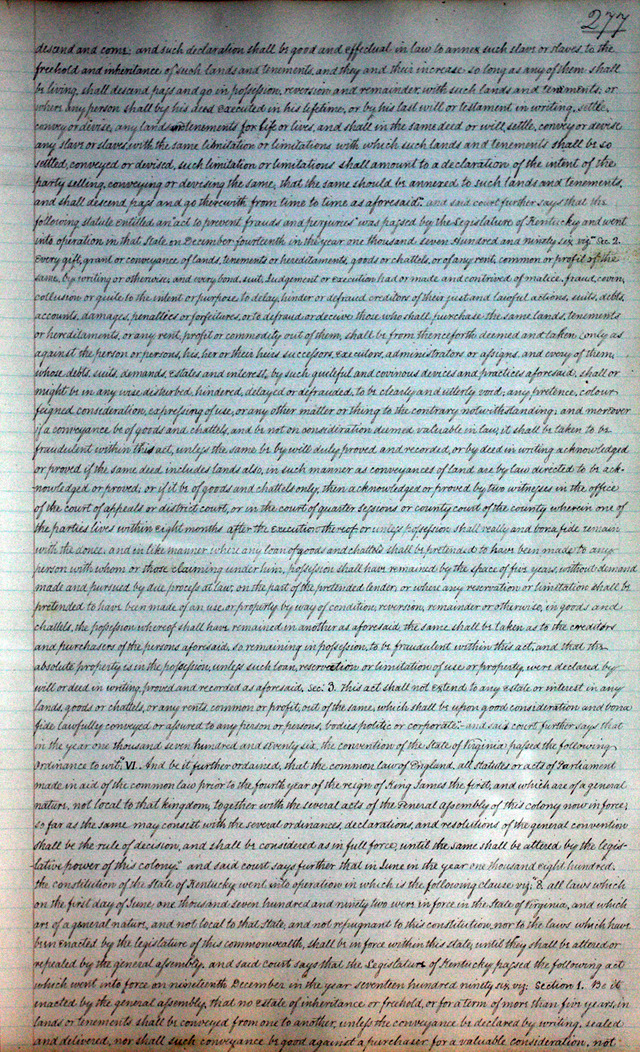 277
descend and come: and such declaration shall be good and effectual in law to annex such slave or slaves to the
freehold and inheritance of such lands and tenements, and they and their increase so long as any of them shall
be living, shall descend pass and go in possession, reversion and remainder, with such lands and tenements: or
when any person shall by his deed executed in his lifetime, or by his last will or testament in writing, settle,
convey or devise, any lands or tenements for life or lives, and shall in the same deed or will, settle, convey or devise
any slave or slaves with the same limitation or limitations with which such lands and tenements shall be so
settled, conveyed or devised, such limitation or limitations shall amount to a declaration of the intent of the
party selling, conveying or devising the same, that the same should be annexed to such lands and tenements,
and shall descend pass and go therewith from time to time as aforesaid." and said court further says that the
following statute entitled an "act to prevent frauds and perjuries" was passed by the Legislature of Kentucky and went
into operation in that State on December fourteenth in the year one thousand seven Hundred and ninety six viz." Sec 2.
Every gift, grant or conveyance of lands, tenements or hereditaments, goods or chattels, or of any rent, common or profit of the
same, by writing or otherwise, and every bond, suit, Judgement or execution had or made and contrived of malice, fraud, covin,
collusion or guile to the intent or purpose to delay, hinder or defraud creditors of their just and lawful actions, suits, debts,
accounts, damages, penalties or forfeitures, or to defraud or deceive those who shall purchase the same lands, tenements
or hereditaments, or any rent, profit or commodity out of them, shall be from thenceforth deemed and taken (only as
against the person or persons, his, her or their heirs successors, executors, administrators or assigns, and every of them,
whose debts, suits, demands, estates and interest, by such guileful and covinous devices and practices aforesaid, shall or
might be in any wise disturbed, hindered, delayed or defrauded, to be clearly and utterly void; any pretence, colour
feigned consideration, expressing of use, or any other matter or thing to the contrary notwithstanding; and moreover
if a conveyance be of goods and chattels, and be not on consideration deemed valuable in law, it shall be taken to be
fraudulent within this act, unless the same be by will duly proved and recorded, or by deed in writing acknowledged
or proved if the same deed includes lands also, in such manner as conveyances of land are by law directed to be ack-
nowledged or proved, or if it be of goods and chattels only, then acknowledged or proved by two witnesses in the office
of the court of appeals or district court, or in the court of quarter sessions or county court of the county wherein one of
the parties lives within eight months after the execution thereof or unless possession shall really and bona fide remain
with the donee, and in like manner where any loan of goods and chattels shall be pretended to have been made to any
person with whom or those claiming under him, possession shall have remained by the space of five years, without demand
made and pursued by due process at law, on the part of the pretended lender, or where any reservation or limitation shall be
pretended to have been made of an use or property by way of condition, reversion, remainder or otherwise, in goods and
chattels, the possession whereof shall have remained in another as aforesaid the same shall be taken as to the creditors
and purchasers of the persons aforesaid, so remaining in possession, to be fraudulent within this act, and that the
absolute property is in the possession, unless such loan, reservation or limitation of use or property, were declared by
will or deed in writing proved and recorded as aforesaid. Sec. 3. This act shall not extend to any estate or interest in any
lands, goods or chattels, or any rents, common or profit, out of the same, which shall be upon good consideration and bona
fide lawfully conveyed or assured to any person or persons, bodies politic or corporate." and said court further says that
in the year one thousand seven hundred and seventy six, the convention of the State of Virginia passed the following
ordinance to wit, "VI. And be it further ordained, that the common law of England, all statutes or acts of Parliament
made in aid of the common law prior to the fourth year of the reign of King James the first, and which are of a general
nature, not local to that kingdom, together with the several acts of the general assembly of this colony now in force,
so far as the same may consist with the several ordinances, declarations, and resolutions of the general convention
shall be the rule of decision, and shall be considered as in full force, until the same shall be altered by the legis-
lative power of this colony." and said court says further that in June in the year one thousand eight hundred,
the constitution of the State of Kentucky went into operation in which is the following clause viz; "8. all laws which
on the first day of June one thousand seven hundred and ninety two were in force in the State of Virginia, and which
are of a general nature, and not local to that State, and not repugnant to this constitution, nor to the laws which have
been enacted by the legislature of this commonwealth, shall be in force within this state, until they shall be altered or
repealed by the general assembly. and said court says that the Legislature of Kentucky passed the following act
which went into force on nineteenth December in the year seventeen hundred ninety six viz; Section 1. Be it
enacted by the general assembly, that no estate of inheritance or freehold, or for a term of more than five years, in
lands or tenements shall be conveyed from one to another, unless the conveyance be declared by writing, sealed
and delivered, nor shall such conveyance be good against a purchaser for a valuable consideration, not